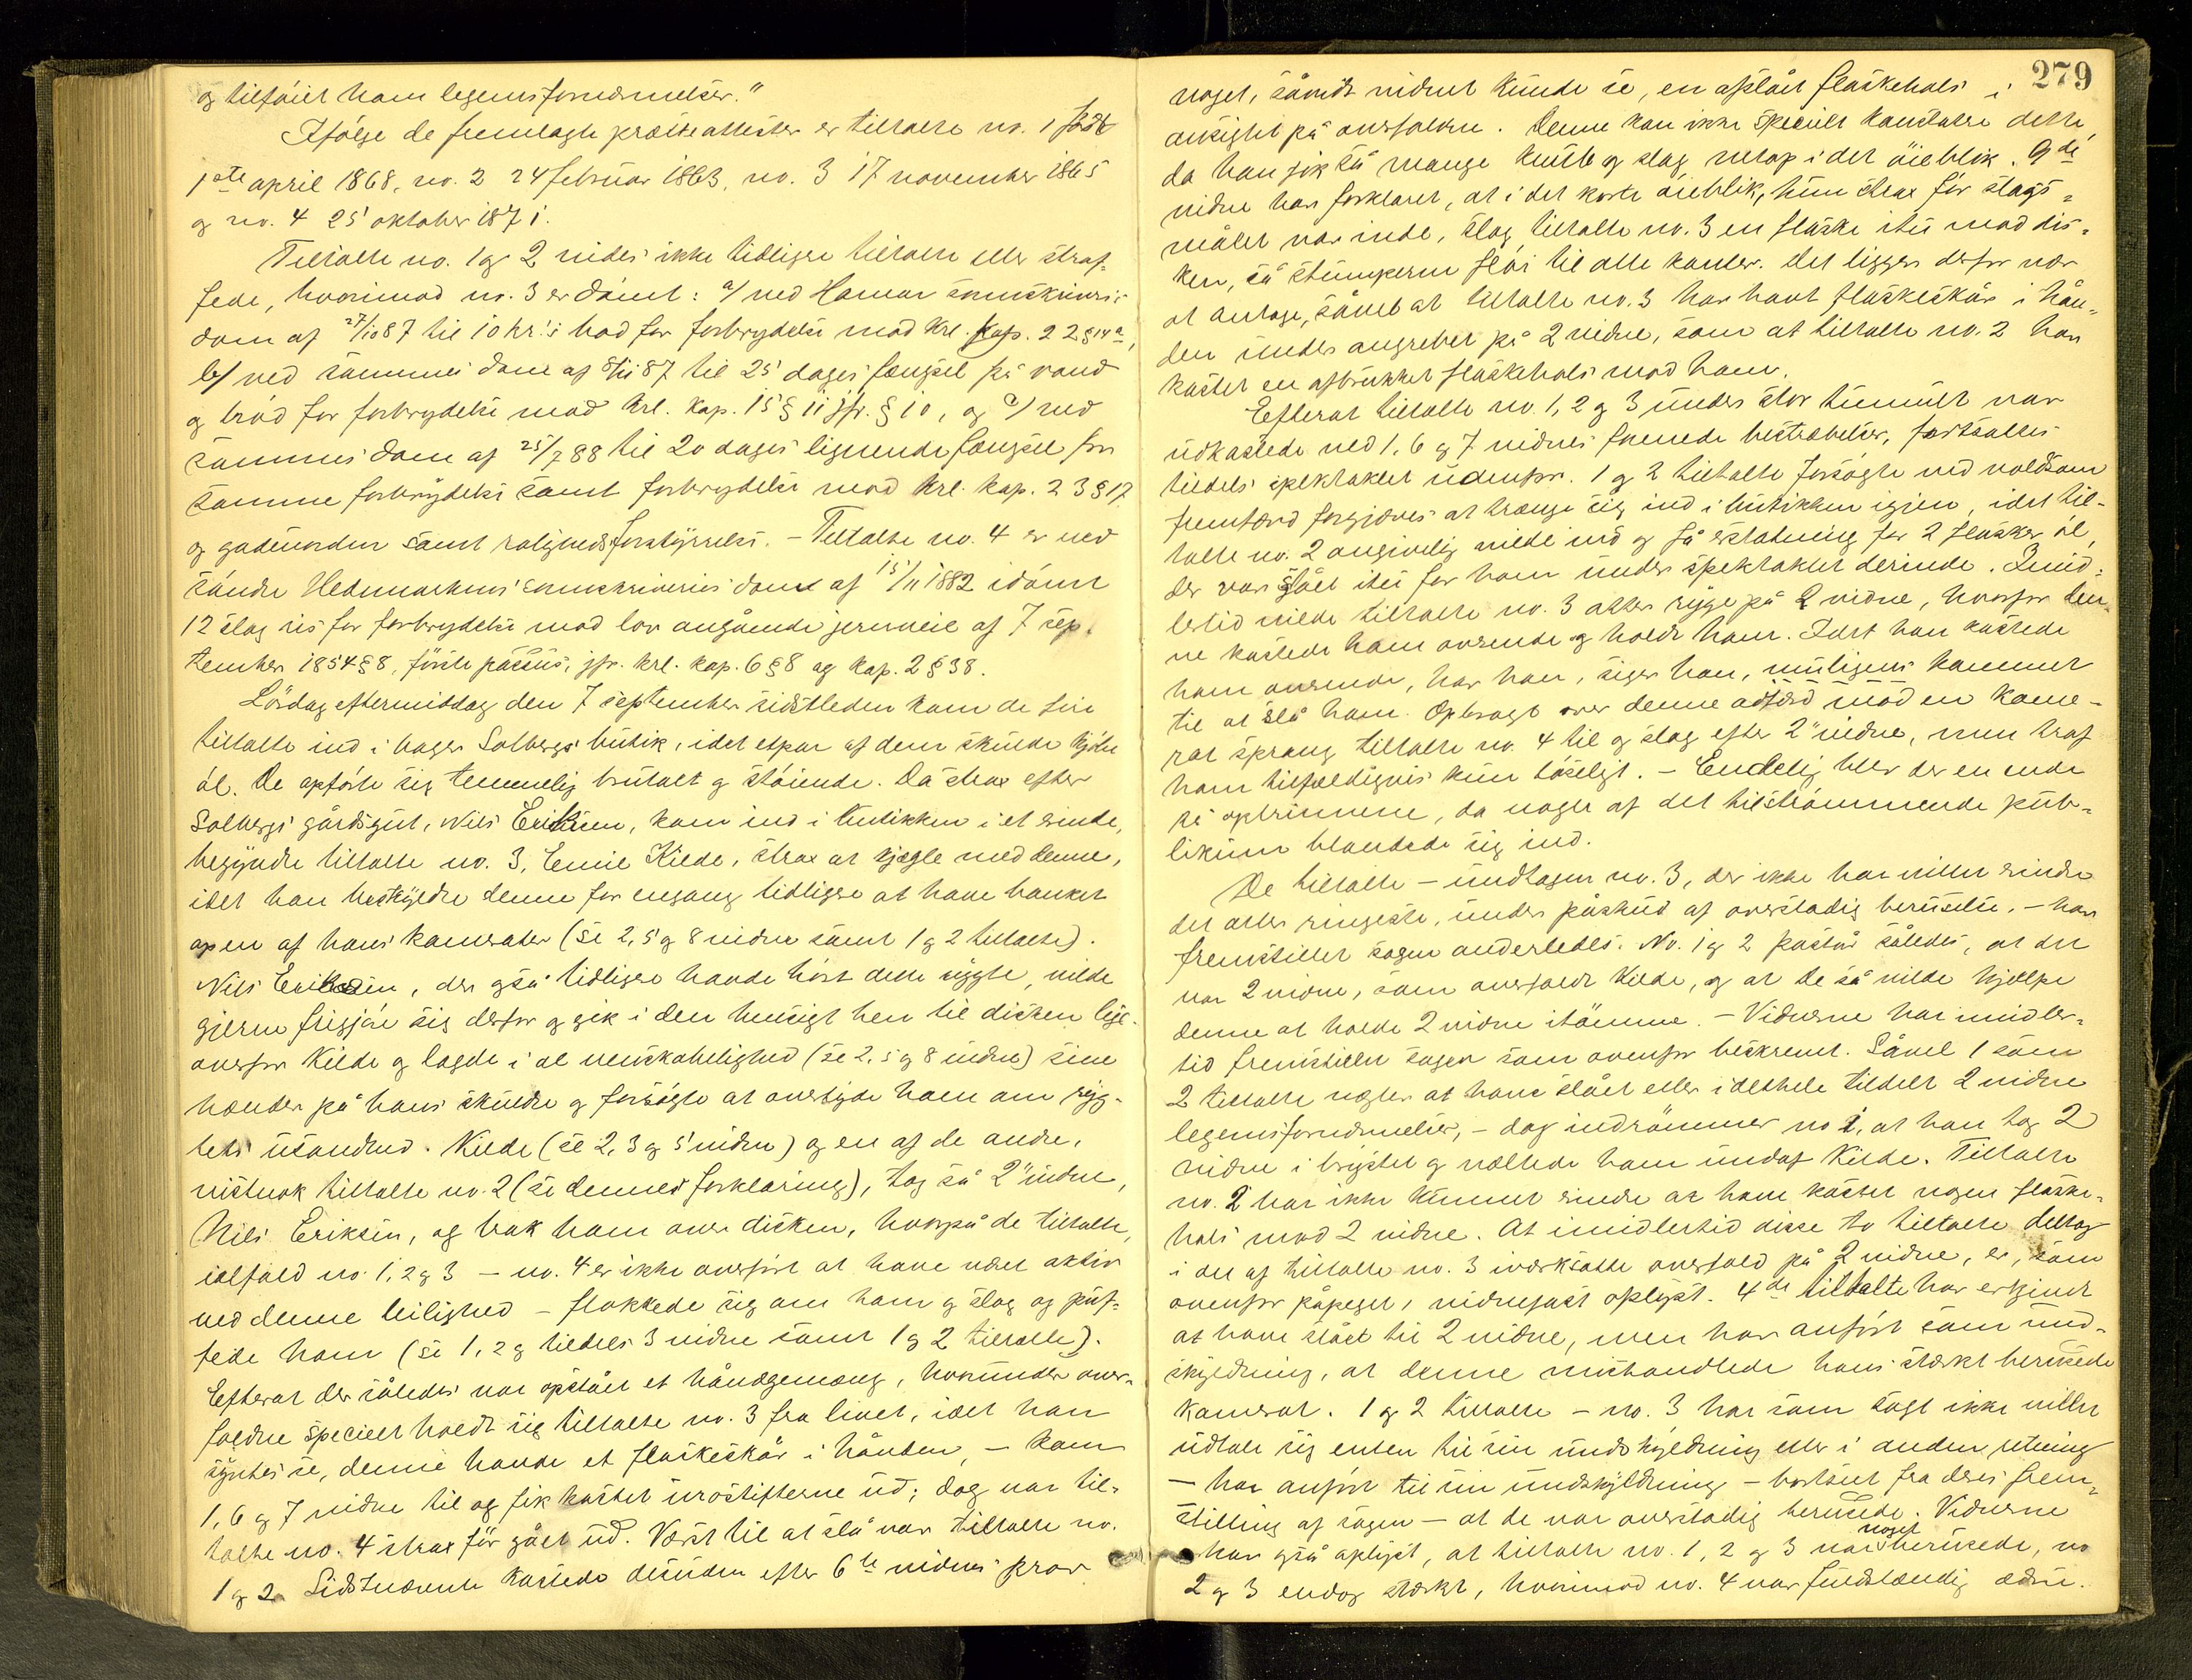 og tilföiet ham legemsfornærmelser."
Ifölge de fremlagte præsteattester er tiltalte no. 1 födt
1ste april 1868, no. 2 24 februar 1863, no. 3 17 november 1865
og no. 4 25 oktober 1871.
Tiltalte no. 1 og 2 vides ikke tidligere tiltalte eller straf-
fede, hvorimod no. 3 er dömt: a/ ved Hamar sorenskriveris
dom af 27/10 87 til 10 kr.s bod for forbrydelse mod krl. kap. 22 § 14 a,
b/ ved sammes dom af 8/11 87 til 25 dages fængsel på vand
og bröd for forbrydelse mod krl. kap. 15 § 11 jfr. § 10, og c/ ved
sammes dom af 25/7 88 til 20 dages lignende fængsel for
samme forbrydelse samt forbrydelse mod krl. kap. 23 § 17
og gadeuorden samt rolighedsforstyrrelse. – Tiltalte no. 4 er ved
söndre Hedemarkens sorenskriveries dom af 15/11 1882 idömt
12 slag ris for forbrydelse mod lov angående jernveie af 7 sep-
tember 1854 § 8, förste passus, jfr. krl. kap. 6 § 8 og kap. 2 § 38.
Lördag eftermiddag den 7 september sidstleden kom de fire
tiltalte ind i bager Solbergs butik, idet etpar af dem skulde kjöbe
öl. De opförte sig temmelig brutalt og stöiende. Da strax efter
Solbergs gårdsgut, Nils Eriksen, kom ind i butikken i et erinde,
begyndte tiltalte no. 3, Emil Kilde, strax at kjægle med denne,
idet han beskyldte denne for engang tidligere at have banket
op en af hans kamerater (se 2, 5 og 8 vidne samt 1 og 2 tiltalte).
Nils Eriksen, der også tidligere havde hört dette rygte, vilde
gjerne frigjöre sig derfor og gik i den hensigt hen til disken lige-
overfor Kilde og lagde i al venskabelighed (se 2, 5 og 8 vidne) sine
hænder på hans skuldre og forsögte at overtyde ham om ryg-
tets usandhed. Kilde (se 2, 3 og 5 vidne) og en af de andre,
vistnok tiltalte no. 2 (se dennes forklaring), tog så 2 vidne,
Nils Eriksen, og trak ham over disken, hvorpå de tiltalte,
ialfald no. 1, 2 og 3 – no. 4 er ikke overfört at have været aktiv
ved denne leilighed – flokkede sig om ham og slog og puf-
fede ham (se 1, 2 og tildels 3 vidne samt 1 og 2 tiltalte).
Efterat der således var opstået et håndgemæng, hvorunder over-
faldne specielt holdt sig tiltalte no. 3 fra livet, idet han
syntes se, denne havde et flaskeskår i hånden, – kom
1, 6 og 7 vidne til og fik kastet urostifterne ud; dog var til-
talte no. 4 strax för gået ud. Værst til at slå var tiltalte no.
1 og 2. Sidstnævnte kastede desuden efter 6te vidnes prov
279
noget, såvidt vidnet kunde se, en afslået flaskehals i
ansigtet på overfaldne. Denne kan ikke specielt konstatere dette,
da han fik så mange knub og slag netop i det öieblik. 9de
vidne har forklaret, at i det korte öieblik, hun strax för slags-
målet var inde, slog tiltalte no. 3 en flaske itu mod dis-
ken, så stumperne flöi til alle kanter. Det ligger derfor nær
at antage, såvel at tiltalte no. 3 har havt flaskeskår i hån-
den under angrebet på 2 vidne, som at tiltalte no. 2 har
kastet en afbrukket flaskehals mod ham.
Efterat tiltalte no. 1, 2 og 3 under stor tummult var
udkastede ved 1, 6 og 7 vidnes forenede bestræbelser, fortsattes
tildels spektaklet udenfor. 1 og 2 tiltalte forsögte ved voldsom
fremfærd forgjæves at trænge sig ind i butikken igjen, idet til-
talte no. 2 angivelig vilde ind og få erstatning for 2 flasker öl,
der var slået itu for ham under spektaklet derinde. Imid-
lertid vilde tiltalte no. 3 atter ryge på 2 vidne, hvorfor den-
ne kastede ham overende og holdt ham. Idet han kastede
ham overende, har han, siger han, muligens kommet
til at slå ham. Opbragt over denne adfærd mod en kame-
rat sprang tiltalte no. 4 til og slog efter 2 vidne, men traf
ham tilfældigvis kun löseligt. – Endelig blev der en ende
på optrinnene, da nogle af det tilströmmende pub-
likum blandede sig ind.
De tiltalte – undtagen no. 3, der ikke har villet erindre
det aller ringeste, under påskud af overstadig beruselse, – har
fremstillet sagen anderledes. No. 1 og 2 påstår således, at det
var 2 vidne, som overfaldt Kilde, og at de så vilde hjælpe
denne at holde 2 vidne itömme. – Vidnerne har imidler-
tid fremstillet sagen som ovenfor beskrevet. Såvel 1 som
2 tiltalte negter at have slået eller idethele tildelt 2 vidne
legemsfornærmelser, – dog indrömmer no 1, at han tog 2
vidne i brystet og væltede ham undaf Kilde. Tiltalte
no. 2 har ikke kunnet erindre at have kastet nogen flaske-
hals mod 2 vidne. At imidlertid disse to tiltalte deltog
i det af tiltalte no. 3 iværksatte overfald på 2 vidne, er, som
ovenfor påpeget, vidnefast oplyst. 4de tiltalte har erkjendt
at have slået til 2 vidne, men har anfört som und-
skyldning, at denne mishandlede hans stærkt berusede
kamerat. 1 og 2 tiltalte – no. 3 har som sagt ikke villet
udtale sig enten til sin undskyldning eller i anden retning
– har anfört til sin undskyldning – bortseet fra deres frem-
stilling af sagen – at de var overstadig berusede. Vidnerne
har også oplyst, at tiltalte no. 1, 2 og 3 var noget berusede, no
2 og 3 endog stærkt, hvorimod no. 4 var fuldstændig ædru.